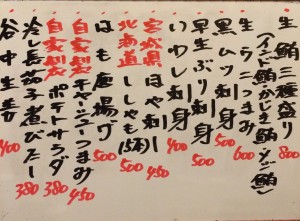 生鮪三種盛り 800
(インド鮪かじき鮪
生うにつまみ 600
黒ムツ刺身 500
早生ぶり刺身 500
いわし刺身 400
宮城県ほや刺し 500
北海道ししゃも(5本) 450
はも唐揚げ 500
自家製チャーシューつまみ 450
自家製ポテトサラダ 380
冷し長茄子煮びたし 380
谷中生姜 400